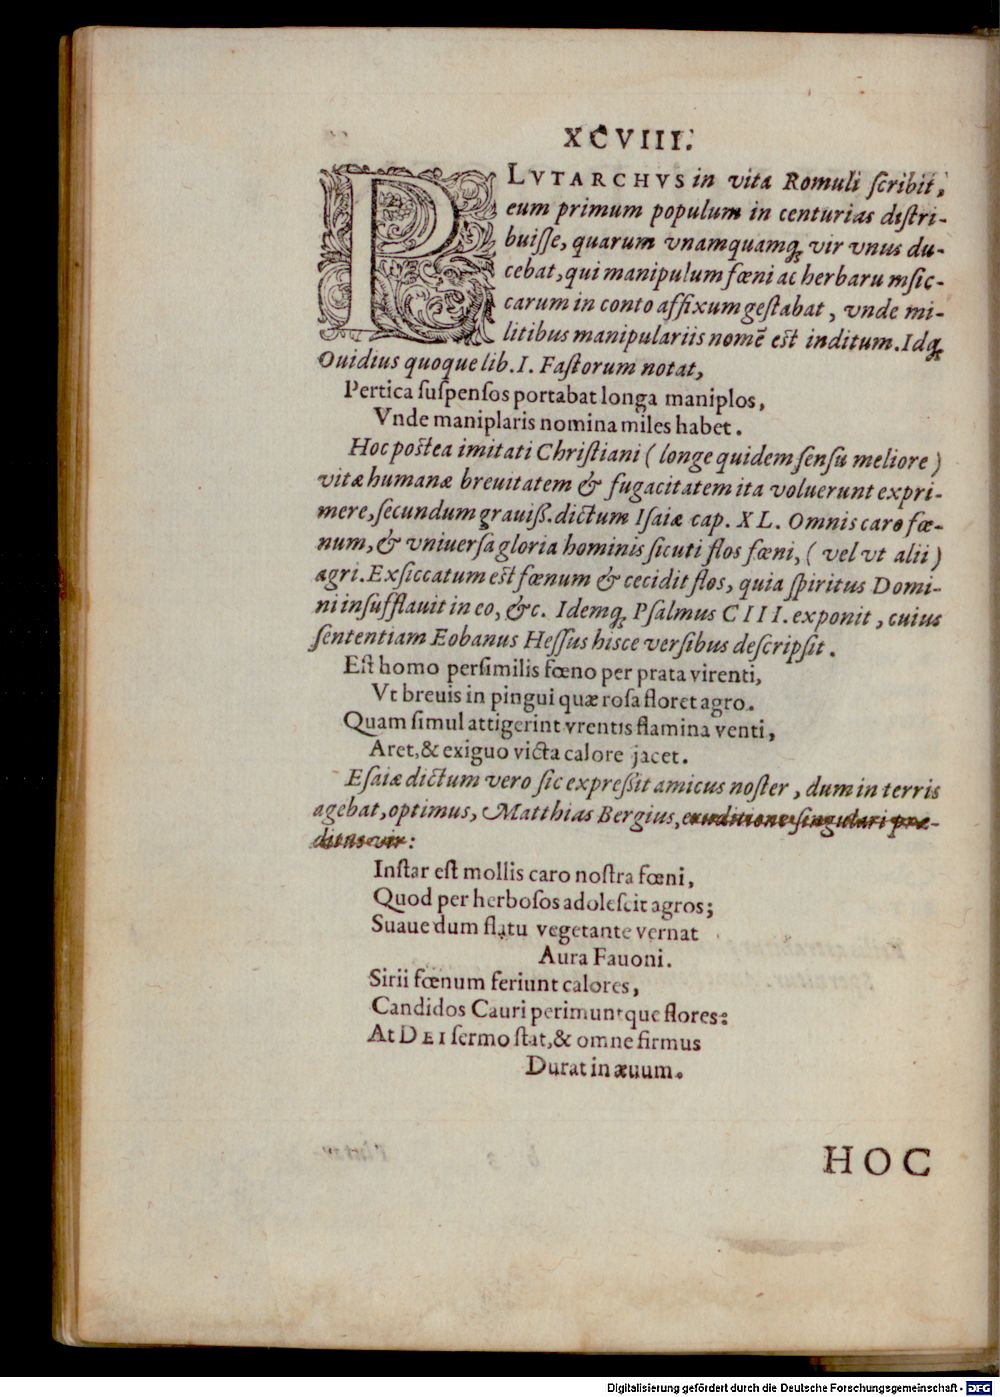 XCVIII.
PLVTARCHVS in vita Romuli ſcribit,
eum primum populum in centurias diſtri-
buiſſe, quarum vnamquamq; vir vnus du-
cebat, qui manipulum fœni ac herbaru mſic-
carum in conto affixum geſtabat, vnde mi-
litibus manipulariis nomē eſt inditum. Idq;
Ouidius quoque lib. I. Faſtorum notat,
Pertica ſuſpenſos portabat longa maniplos,
Vnde maniplaris nomina miles habet.
Hoc poſtea imitati Chriſtiani (longe quidem ſenſu meliore)
vitæ humanæ breuitatem & fugacitatem ita voluerunt expri-
mere, ſecundum grauiß. dictum Iſaiæ cap. XL. Omnis caro fœ-
num, & vniuerſa gloria hominis ſicuti flos fœni, (vel vt alii)
agri. Exſiccatum eſt fœnum & cecidit flos, quia ſpiritus Domi-
ni inſufflauit in eo, &c. Idemq; Pſalmus CIII. exponit, cuius
ſententiam Eobanus Heſſus hisce verſibus deſcripſit.
Eſt homo perſimilis fœno per prata virenti,
Vt breuis in pingui quæ roſa floret agro.
Quam ſimul attigerint vrentis flamina venti,
Aret, & exiguo victa calore jacet.
Eſaiæ dictum vero ſic expreßit amicus noſter, dum in terris
agebat, optimus, Matthias Bergius, eruditione ſingulari præ-
ditus vir:
Inſtar eſt mollis caro noſtra fœni,
Quod per herboſos adoleſcit agros;
Suaue dum flatu vegetante vernat
Aura Fauoni.
Sirii fœnum feriunt calores,
Candidos Cauri perimuntque flores:
At DEI ſermo ſtat, & omne firmus
Durat in æuum.
HOC
Digitalisierung gefördert durch die Deutsche Forschungsgemeinschaft - DFG